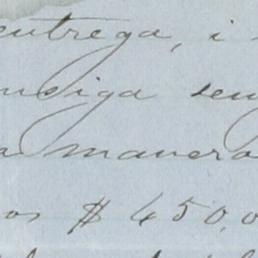 entrega, i
nsiga seng
a manera
os $ 450,0